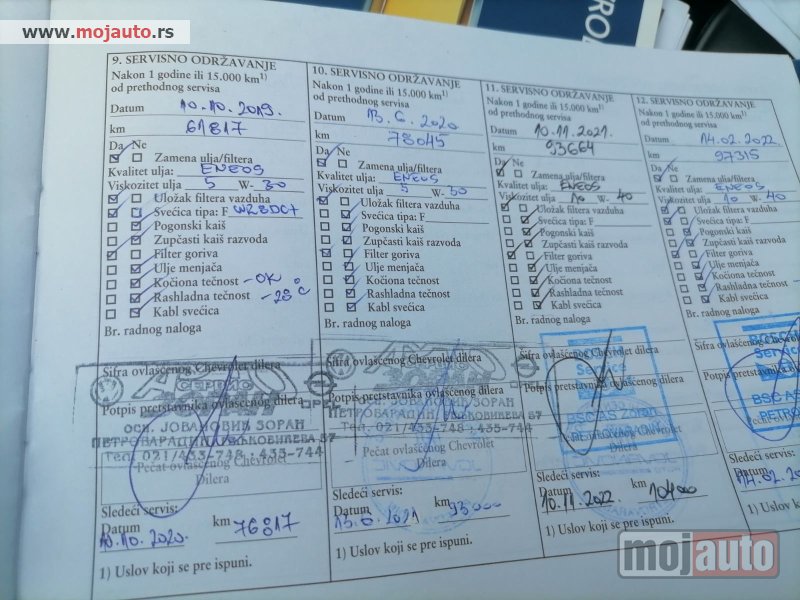 www.mojauto.rs
9. SERVISNO ODRŽAVANJE
Nakon 1 godine ili 15.000 km1)
od prethodnog servisa
Datum 10.10.2019.
km 61817
Da Ne
Zamena ulja/filtera
Kvalitet ulja: ENEOS
Viskozitet ulja 5 W- 30
Uložak filtera vazduha
Svećica tipa: F
Pogonski kaiš
Zupčasti kaiš razvoda
Filter goriva
Ulje menjača
Kočiona tečnost - OK
Rashladna tečnost -28°C
Kabl svećica
Br. radnog naloga
Šifra ovlašćenog Chevrolet dilera
Potpis pretstavnika ovlašćenog dilera
Pečat ovlašćenog Chevrolet
Dilera
Sledeći servis:
Datum km
10.10.2020. 76817
1) Uslov koji se pre ispuni.
10. SERVISNO ODRŽAVANJE
Nakon 1 godine ili 15.000 km1)
od prethodnog servisa
Datum 13.6.2020
km 78045
Da Ne
Zamena ulja/filtera
Kvalitet ulja: ENEOS
Viskozitet ulja 5 W-
Uložak filtera vazduha
Svećica tipa: F
Pogonski kaiš
Zupčasti kaiš razvoda
Filter goriva
Ulje menjača
Kočiona tečnost
Rashladna tečnost
Kabl svećica
Br. radnog naloga
Šifra ovlašćenog Chevrolet dilera
Potpis pretstavnika ovlašćenog dilera
Pečat ovlašćenog Chevrolet
Dilera
Sledeći servis:
Datum km
2021 93000
1) Uslov koji se pre ispuni.
11. SERVISNO ODRŽAVANJE
Nakon 1 godine ili 15.000 km1)
od prethodnog servisa
Datum 10.11.2021.
km 93664
Da Ne
Zamena ulja/filtera
Kvalitet ulja: ENEOS
Viskozitet ulja 10 W- 40
Uložak filtera vazduha
Svećica tipa: F
Pogonski kaiš
Zupčasti kaiš razvoda
Filter goriva
Ulje menjača
Kočiona tečnost
Rashladna tečnost
Kabl svećica
Br. radnog naloga
Šifra ovlašćenog Chevrolet dilera
Sledeći servis:
Datum km
10.11.2022.
1) Uslov koji se pre ispuni.
12. SERVISNO ODRŽAVANJE
Nakon 1 godine ili 15.000 km1)
od prethodnog servisa
Datum 14.02.2022.
km 97315
Da Ne
Zamena ulja/filtera
Kvalitet ulja: ENEOS
Viskozitet ulja 10 W- 40
Uložak filtera vazduha
Svećica tipa: F
Pogonski kaiš
Zupčasti kaiš razvoda
Filter goriva
Ulje menjača
Kočiona tečnost
Rashladna tečnost
Kabl svećica
Br. radnog naloga
Sledeći servis:
Datum
1) Uslov koji se
СЕРВИС
ОСВ. ЈОВАНОВИЋ ЗОРАН
ПЕТРОВАРАДИН
Тел. 021/433-748 ; 435-744
mojauto